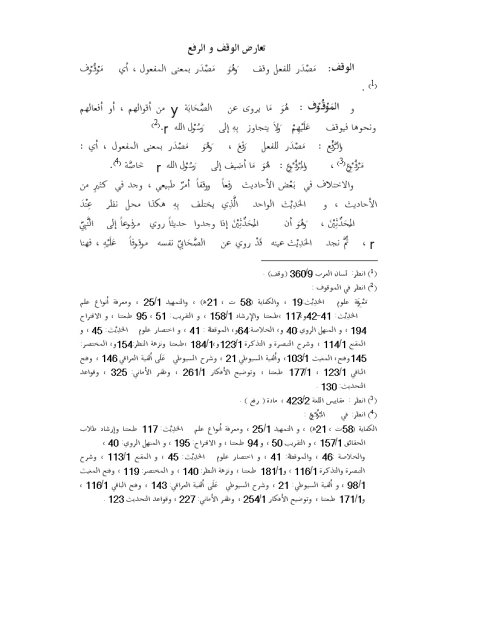 تعارض الوقف و الرفع
الوقف: مَصْدَر للفعل وقف وَهُوَ مَصْدَر بمعنى المفعول ، أي مَوْقُوْف
(1) .
و المَوْقُوْف : هُوَ مَا يروى عن الصَّحَابَة y من أقوالهم ، أو أفعالهم
ونحوها فيوقف عَلَيْهِمْ وَلاَ يتجاوز بِهِ إلى رَسُوْل الله r.(2)
والرَّفْع : مَصْدَر للفعل رَفَعَ ، وَهُوَ مَصْدَر بمعنى المفعول ، أي :
مَرْفُوْع(3) ، والمَرْفُوْع : هُوَ مَا أضيف إلى رَسُوْل الله r خَاصَّة (4).
والاختلاف في بَعْض الأحاديث رفعاً ووقفاً أمرٌ طبيعي ، وجد في كثيرٍ من
الأحاديث ، و الحَدِيْث الواحد الَّذِي يختلف بِهِ هكذا محل نظر عِنْدَ
المُحَدِّثِيْنَ ، وَهُوَ أن المُحَدِّثِيْنَ إذا وجدوا حديثاً روي مرفوعاً إلى النَّبِيّ
r ، ثُمَّ نجد الحَدِيْث عينه قَدْ روي عن الصَّحَابيِّ نفسه موقوفاً عَلَيْهِ ، فهنا
(1) انظر: لسان العرب 360/9 (وقف) .
(2) انظر في الموقوف :
مَعْرِفَة علوم الحَدِيْث 19 ، والكفاية (58 ت ، 21ه) ، والتمهيد 25/1 ، ومعرفة أنواع علم
الحَدِيْث: 41–42 و117 طبعتنا والإرشاد 158/1 ، و التقريب: 51 ، 95 طبعتنا ، و الاقتراح
194 ، و المنهل الروي 40 ، و الخلاصة:64، و الموقظة : 41 ، و اختصار علوم الحَدِيْث: 45 ، و
المقنع 114/1 ، وشرح التبصرة و التذكرة 123/1، و184/1 طبعتنا ونزهة النظر154، والمختصر:
145 وفتح المغيث 103/1، و ألفية السيوطي 21 ، وشرح السيوطي عَلَى ألفية العراقي 146 ، وفتح
الباقي 123/1 ، 177/1 طبعتنا ، وتوضيح الأفكار 261/1 ، وظفر الأماني: 325 ، وقواعد
التحديث: 130 .
(3) انظر : مقاييس اللغة 423/2 ، مادة ( رفع ) .
(4) انظر: في المَرْفُوْع :
الكفاية (58ت ، 21ه) ، و التمهيد 25/1 ، ومعرفة أنواع علم الحَدِيْث: 117 طبعتنا وإرشاد طلاب
الحقائق 157/1 ، و التقريب 50 ، و94 طبعتنا ، و الاقتراح: 195 ، و المنهل الروي: 40 ،
والخلاصة :46 ، والموقظة: 41 ، و اختصار علوم الحَدِيْث: 45 ، و المقنع 113/1 ، وشرح
التبصرة والتذكرة 116/1 ، و181/1 طبعتنا ، ونزهة النظر: 140 ، و المختصر: 119 ، وفتح المغيث
98/1 ، و ألفية السيوطي: 21 ، وشرح السيوطي عَلَى ألفية العراقي: 143 ، وفتح الباقي 116/1 ،
و171/1 طبعتنا ، وتوضيح الأفكار 254/1 ، وظفر الأماني: 227 ، وقواعد التحديث 123 .